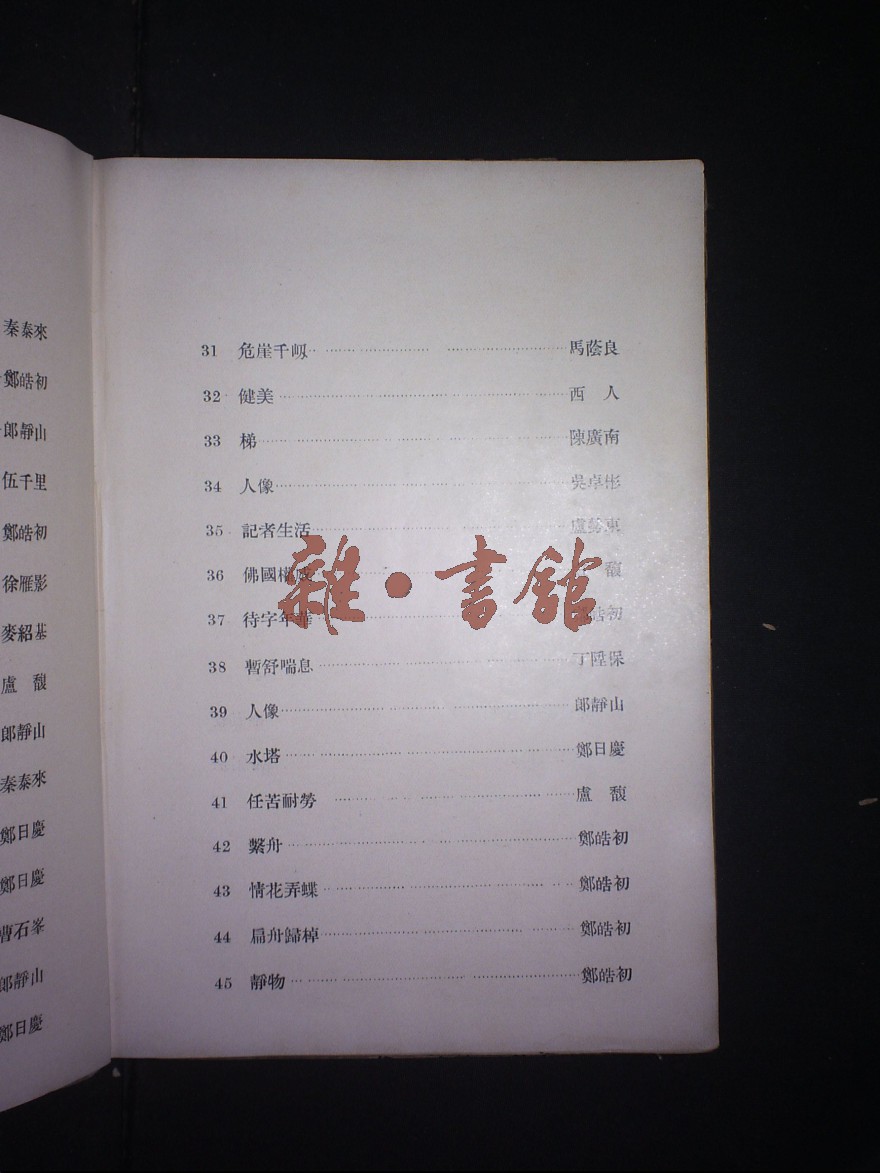 秦泰來
鄭皓初
郎靜山
伍千里
鄭皓初
徐雁影
麥紹基
盧 馥
郎靜山
秦泰來
鄭日慶
鄭日慶
曹石峯
郎靜山
鄭日慶
31 危崖千屻 馬蔭良
32 健美 西 人
33 梯 陳廣南
34 人像 吳卓彬
35 記者生活 盧 東
36 佛國權威 馥
37 待字年華 皓初
38 暫舒喘息 丁陞保
39 人像 郎靜山
40 水塔 鄭日慶
41 任苦耐勞 盧 馥
42 繫舟 鄭皓初
43 情花弄蝶 鄭皓初
44 扁舟歸棹 鄭皓初
45 靜物 鄭皓初
雜·書館